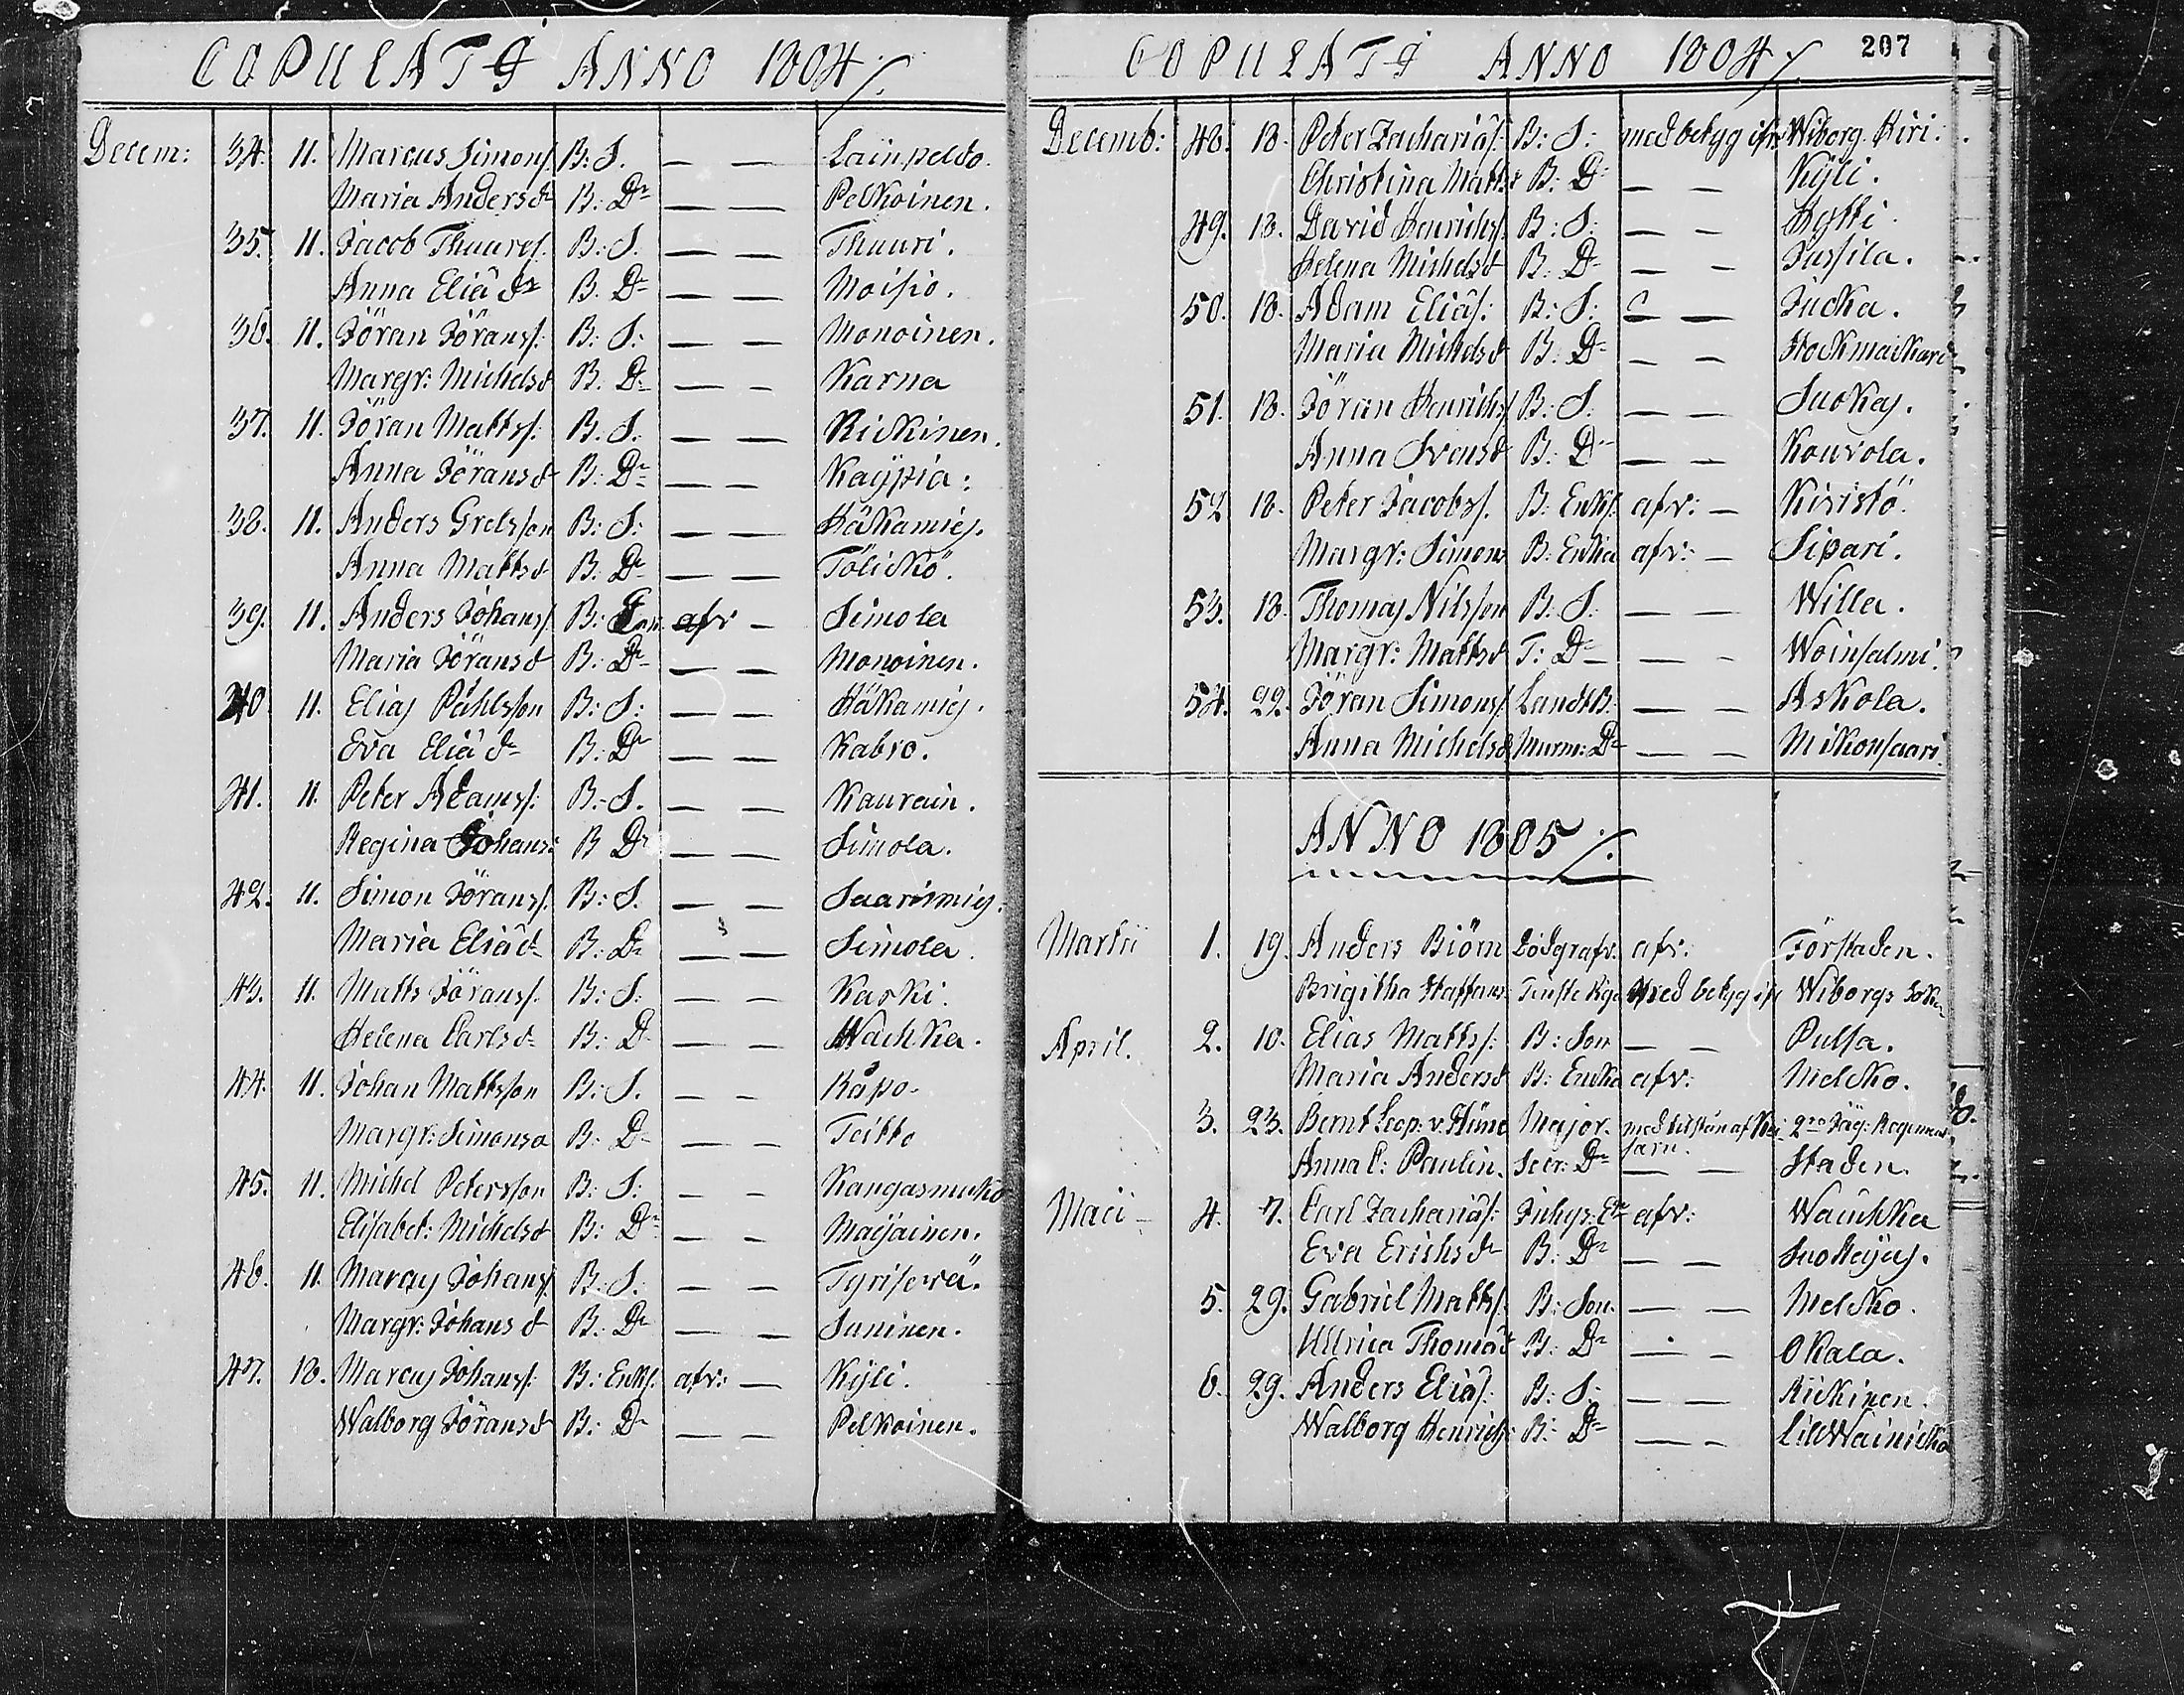 COPULATI ANNO 1804 ./.
Decem: 34. 11. Marcus Simonss. B: S. — — Laiinpeldo.
Maria Andersdr B: Dr — — Pelkoinen.
35. 11. Jacob Thuuress. B: S. — — Thuuri.
Anna Eliædr B. Dr — — Moisio.
36. 11. Jöran Jöranss: B: S: — — Monoinen.
Margr: Michelsd B: Dr — — Karna
37. 11. Jöran Mattss: B. S. — — Rickinen.
Anna Göransd B: Dr — — Kaÿpia:
38. 11. Anders Grelsson B: S: — — Häkamies.
Anna Mattsd B: Dr — — Tölickö.
39. 11. Anders Johanss. B: afv — Simola
Maria Jöransd B: Dr — — Monoinen.
40 11. Elias Påhlsson B: S: — — Häkamies.
Eva Eliædr B: Dr — — Kabro.
41. 11. Peter Adamss: B: S. — — Kaurain.
Regina Johans: B Dr — — Simola.
42. 11. Simon Jöranss. B: S. — — Saarismies.
Maria Eliæd B: Dr — — Simola.
43. 11. Matts Jöranss. B: S: — — Kaski.
Helena Carlsdr B: D — — Wachka.
44. 11. Johan Mattsson B: S. — — Kåpo.
Margr: Simonsd B: Dr — — Teitto
45. 11. Michel Petersson B: S: — — Kangasmuko
Elisabet: Michelsd B: Dr — — Maÿainen.
46. 11. Marcus Johanss. B: S. — — Tyriseva.
Margr: Johansd B: Dr — — Suninen.
47. 18. Marcus Johanss: B: Enkl. afv: — Kÿli.
Walborg Jöransd B: Dr — — Pelkoinen.
COPULATI ANNO 1804 ./. 207
Decemb: 48. 18. Peter Zachariæs: B: S: med betyg ifr: Wiborg. Kiri:
Christina Matts B: D: — — Kÿli.
49. 18. David Henrichss. B: S: — — Hytti.
Helena Michelsd B: Dr — — Jussila.
50. 18. Adam Eliæs: B: S: — — Jucka.
Maria Michelsd B: Dr — — Hockmackari
51. 18. Jöran Henrichss B: S. — — Suokas.
Anna Svensd B: Dr — — Kouvola.
52 18. Peter Jacobss. B: Enkl. afv: — Kiristö.
Margr: Simons B: Enkia afv: — Sipari.
53. 18. Thomas Nilsson B: S: — — Willa.
Margr: Mattsd T: Dr — — Woinsalmi.
54. 22. Jöran Simonss. LandtB: — — Askola.
Anna Michelsd Murm: Dr — — Mikonsaari.
ANNO 1805 ./.
Martii 1. 19. Anders Biörn Dödgrafv. afv: Förstaden.
Brigitha Staffans Tienste med betyg ifr Wiborgs Sokn
April. 2. 10. Elias Mattss: B: Son — — Pulsa.
Maria Andersd B: Enckia afv: Melcko.
3. 23. Bernt Leop: v: Hüne Major. med tilstån af Kei- 2ra Jäg: Regement.
sarn.
Anna C: Paulin. Secr: Dr — — Staden.
Maii 4. 7. Carl Zachariæs: Inhys: afv: Wauchka
Eva Erichsdr B: Dr — — Suokÿas.
5. 29. Gabriel Mattss. B: Son. — — Melcko.
Ullrica Thomæd B: Dr — — Okala.
6. 29. Anders Eliæs: B: S: — — Rickinen.
Walborg Henrichs: B: Dr — — LillWainicka